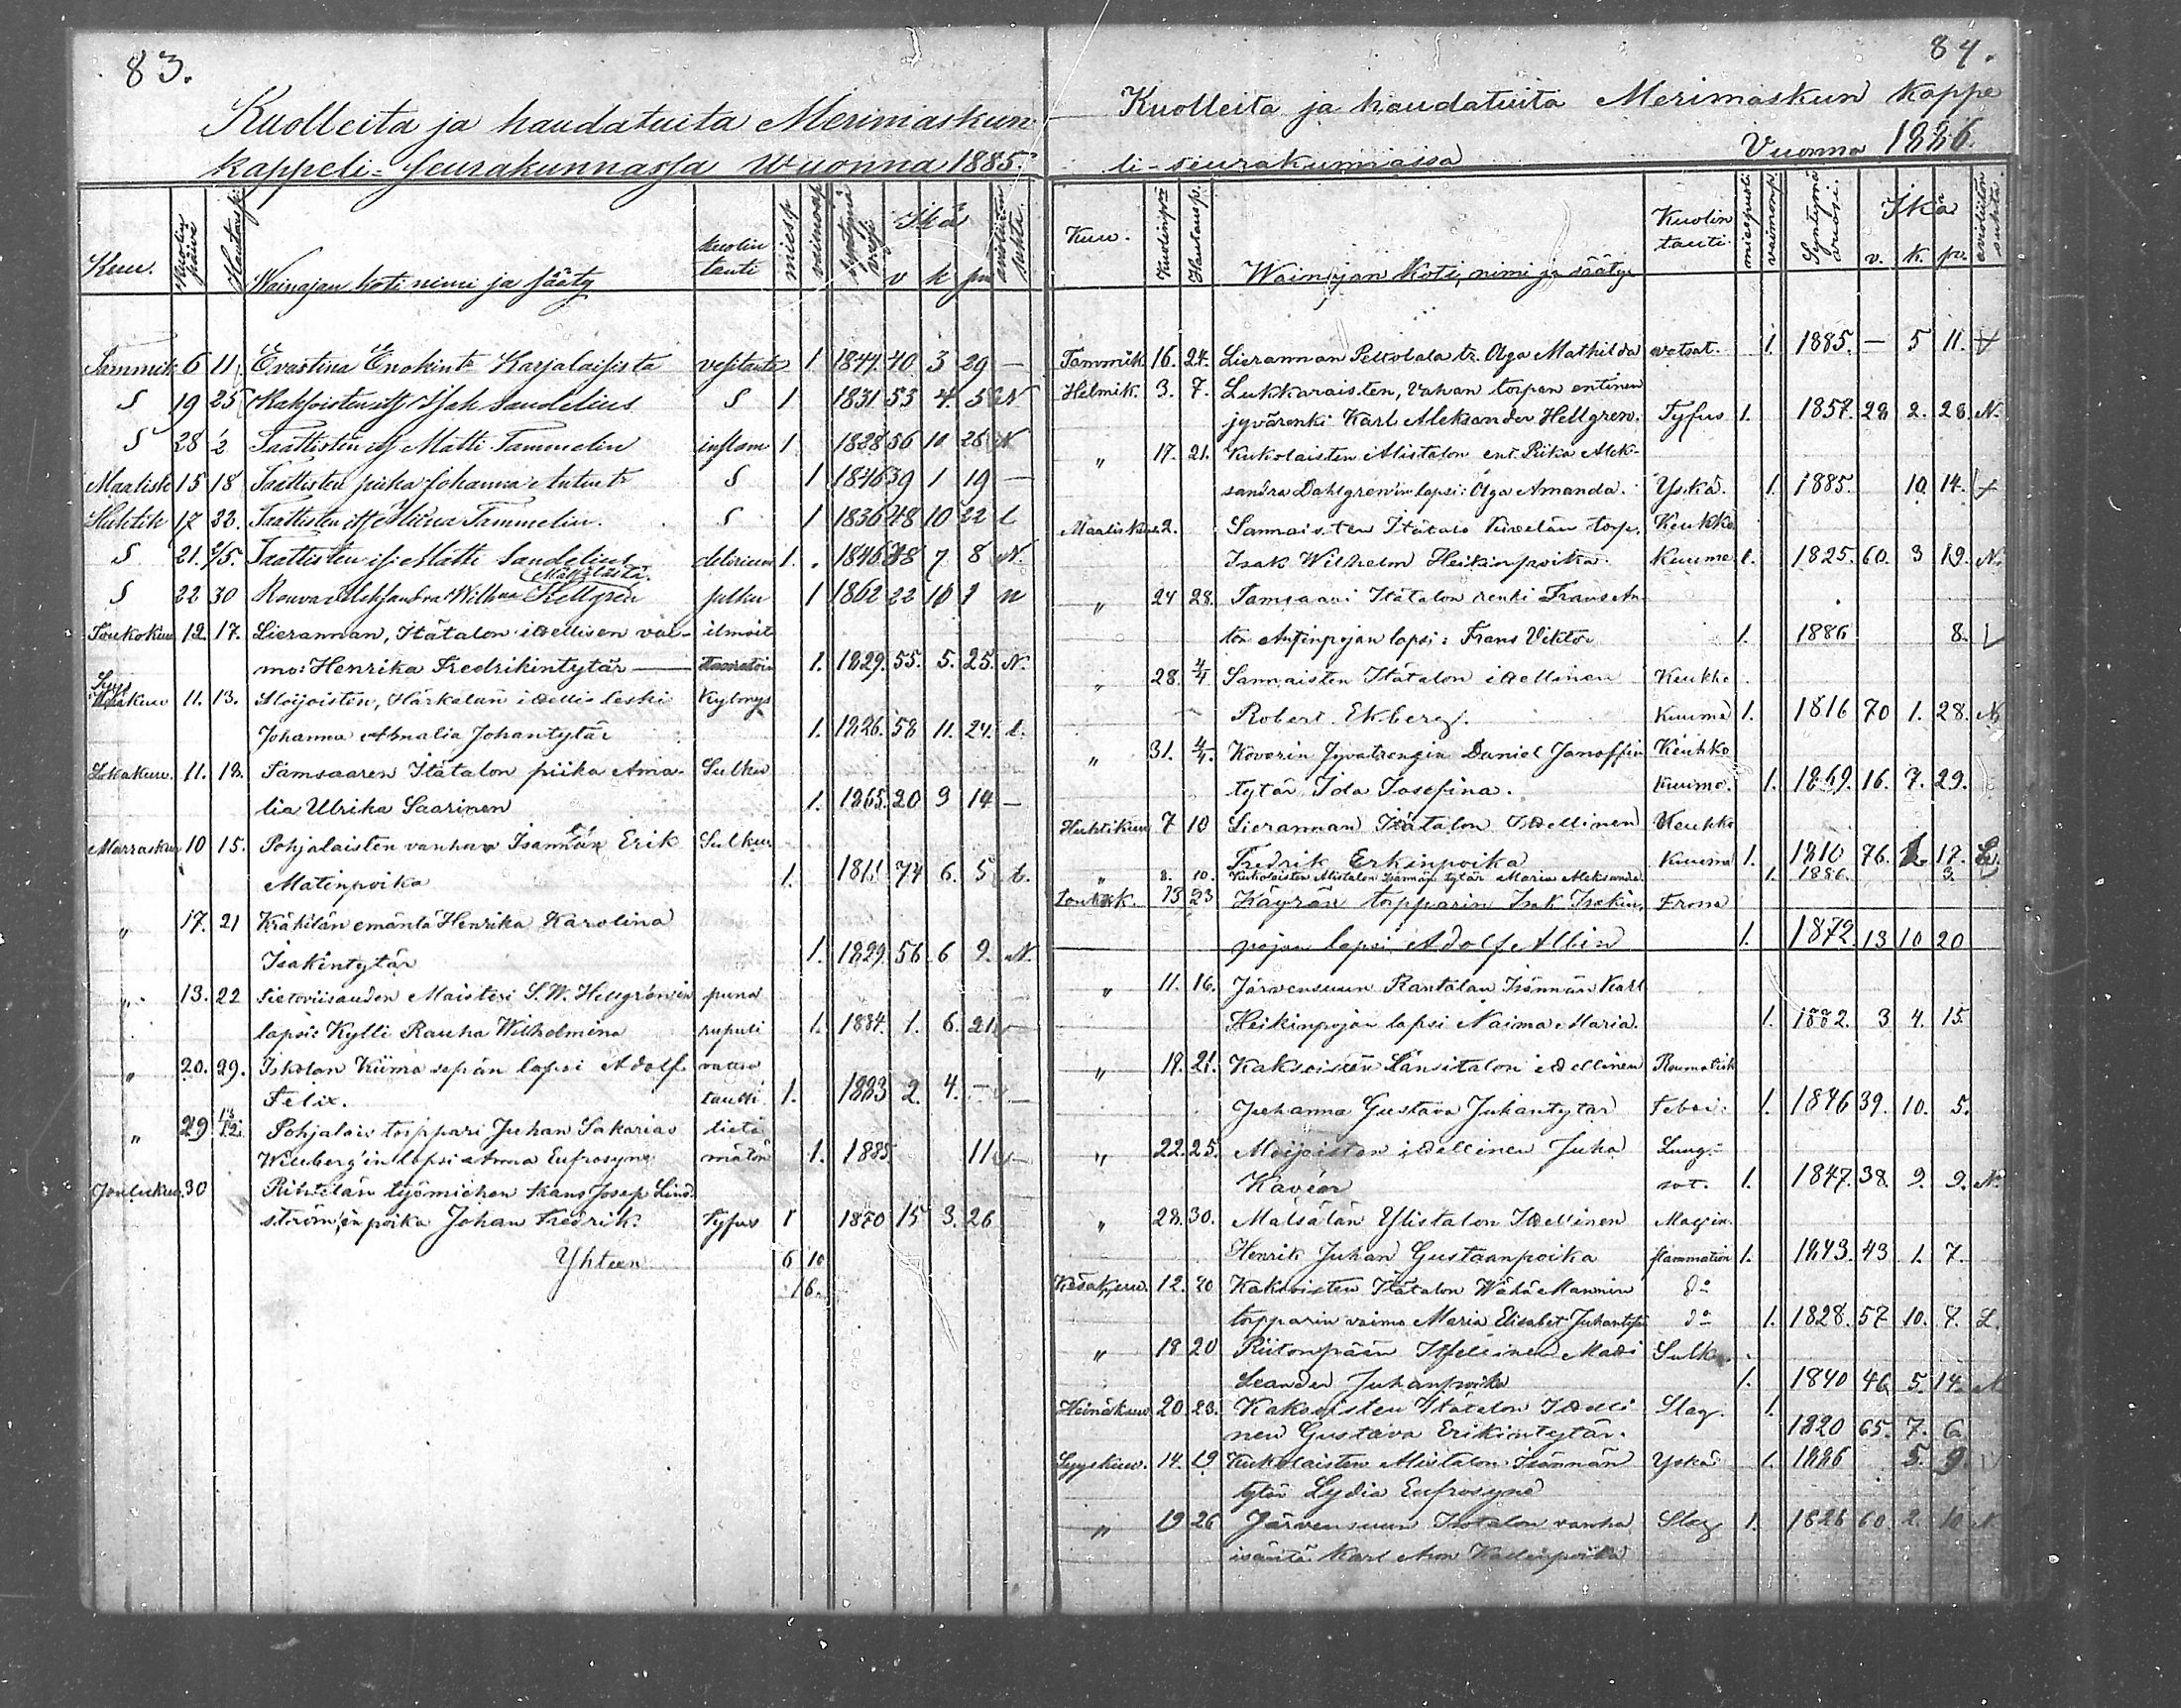 83.
Kuolleita ja haudatuita Merimaskun
kappeli-seurakunnassa wuonna 1885.
Kuu. Kuolin päivä Hautausp. Wainajan koti nimi ja sääty kuolin tauti miesp vaimonp syntymä vuosi Ikä v k pu
Tammik 6 11 Evastina Enokint. Karjalaisista vesitauti 1. 1844. 40 3 29 —
S 19 25 Isak Sandelius S 1 1831 53 4. N
S 28 2 Taattisten Matti Tammelin inflam 1 1828 56 10 26 N
Maalisk 15 18 Taattisten piika Johanna Antint. S 1 1846 39 1 19 —
Huhtik 17 Taattisten Miina Tammelin. S 1 1836 48 10 22 L
S 21. 2/5. Taattisten Matti Sandelius delirium 1. 1846 38 7 8 N.
S 22 30 Rouva Aleksandra Wilh:na Hellgren 1 1862 22 N
Toukokuu 12. 17. Lierannan, Itätalon idellisen vai- ilmoit
mo: Henrika Fredrikintytär — 1. 1829. 55. 5. 25. N.
Syys 11. 13. Moijoisten, Härkälän idellis leski Kylmys
Johanna Amalia Johantytär 1. 1826. 58 11. 24. L.
Lokakuu. 11. 18. Samsaaren Itätalon piika Ama- Sulku
lia Ulrika Saarinen 1. 1865. 20 9 14 —
Marraskuu 10 15. Pohjalaisten vanhan Isännän Erik Sulku
Matinpoika 1. 1811 74 6. 5 L.
„ 17. 21 Kräkilän emäntä Henrika Karolina
Isakintytär 1. 1829. 56. 6 9. N.
„ 13. 22 Tietoviisauden Maisteri S. W. Hellgrénin puna
lapsi: Kylli Rauha Wilhelmina rupuli 1. 1884. 1. 6. 21 —
„ 20. 29. Iskolan Kiima sepän lapsi Adolf vatsa
Felix. tauti 1. 1883 2. 4. — —
„ 29 13/12. Pohjalais torppari Juhan Sakarias tietä
Willberg'in lapsi Anna Eufrosyne mätön 1. 1885 11 —
Joulukuu. 30 työmiehen Hans Josep Lind-
ström'in poika Johan Fredrik. Tyfus 1 1870 15 3. 26
Yhteen 6 10
16.
84.
Kuolleita ja haudatuita Merimaskun kappe
li-seurakunnassa Vuonna 1886.
Kuu. Kuolinpvä Hautausp. Wainajan Koti, nimi ja sääty Kuolin tauti. miespuoli vaimonp. Syntymä vuosi. Ikä v. k. pv. avioliiton suhta.
Tammik 16. 24. Lierannan Peltolala tr. Olga Mathilda vatsat. 1. 1885. — 5 11.
Helmik. 3. 7. Lukkaraisten, Vahan torpan entinen
jyvärenki Karl Aleksander Hellgren. Tyfus 1. 1857. 28 2. 28. N.
„ 17. 21. Kukolaisten Alistalon ent. Piika Alek-
sandra Dahlgren'in lapsi: Olga Amanda. Yskä. 1. 1885. 10. 14.
Maaliskuu 2. Sannaisten Itätalo torp. Keukko
Isak Wilhelm Heikinpoika. Kuume 1. 1825. 60. 3 19. N.
„ 24 28. Samsaari Itätalon renki Frans An-
ton Antinpojan lapsi: Frans Viktor 1. 1886 8.
„ 28. 4/4 Sannaisten Itätalon idellinen Keukko
Robert Ekberg. Kuume 1. 1816 70 1. 28. N
„ 31. 4/4. Koverin Jyvärengin Daniel Janssonin Keukko
tytär Ida Josefina. Kuume. 1. 1869. 16. 7. 29.
Huhtikuu 7 10 Lierannan Itätalon Idellinen Keukko
Fredrik Erkinpoika Kuume 1. 1810 76. 17.
„ 8. 10. Kukolaisten Alistalon Isännän tytär Maria Aleksandra 1. 1886. 3.
Toukok. 13 23 Käyrän torpparin Isak Isakin Frossa
pojan lapsi Adolf Albin 1. 1872 13 10 20
„ 11. 16. Järvensuun Rantalan Isännän Karl
Heikinpojan lapsi Naima Maria. 1. 1882. 3 4. 15.
„ 19. 21. Kaksoisten Länsitalon idellinen Reumatisk
Juhanna Gustava Juhantytär Feber: 1. 1846 39. 10. 5.
„ 22. 25. Moijoisten idellinen Juha Lung-
Kavéor sot. 1. 1847. 38. 9. 9. N.
„ 28. 30. Maisälän Ylistalon Idellinen Mag in-
Henrik Juhan Gustaanpoika flammation 1. 1843. 43 1. 7.
Kesäkuu. 12. 20 Kaksoisten Itätalon Wähä Mannin d:o
torpparin vaimo Maria Elisabet Juhantytär d:o 1. 1828. 57 10. 7. L.
„ 18 20 Riitonpään Idellinen Mats Sulku
Leander Juhanpoika 1. 1840 46 5. 14.
Heinäkuu. 20. 23. Kaksoisten Itätalon Idelli Slag. 1.
nen Gustava Erikintytär. 1820 65. 7. 6
Syyskuu. 14. 19 Kukolaisten Alistalon Isännän Yskä 1. 1886 5. 9.
tytär Lydia Eufrosyne
„ 19 26 Järvensuun Isotalon vanha Slag 1. 1826 60. 2. 10 N
isäntä Karl Aron Kallenpoika